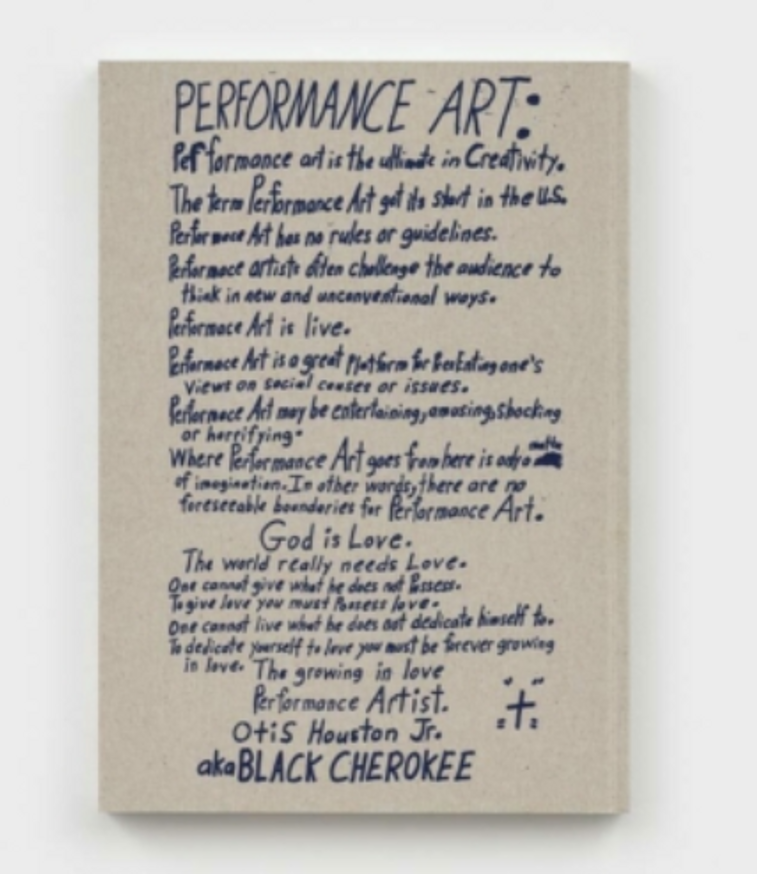 PERFORMANCE ART:
Performance art is the ultimate in Creativity.
The term Performance Art got its start in the U.S.
Performace Art has no rules or guidelines.
Performace artists often challenge the audience to
think in new and unconventional ways.
Performace Art is live.
Performace Art is a great Platform for one's
views on social causes or issues.
Performace Art may be entertaining, amusing, shocking
or horrifying.
Where Performance Art goes from here is only a matter
of imagination. In other words, there are no
foreseeable boundaries for Performance Art.
God is Love.
The world really needs Love.
One cannot give what he does not Possess.
To give love you must Possess love.
One cannot live what he does not dedicate himself to.
To dedicate yourself to love you must be forever growing
in love. The growing in love
Performance Artist.
Otis Houston Jr.
aka BLACK CHEROKEE